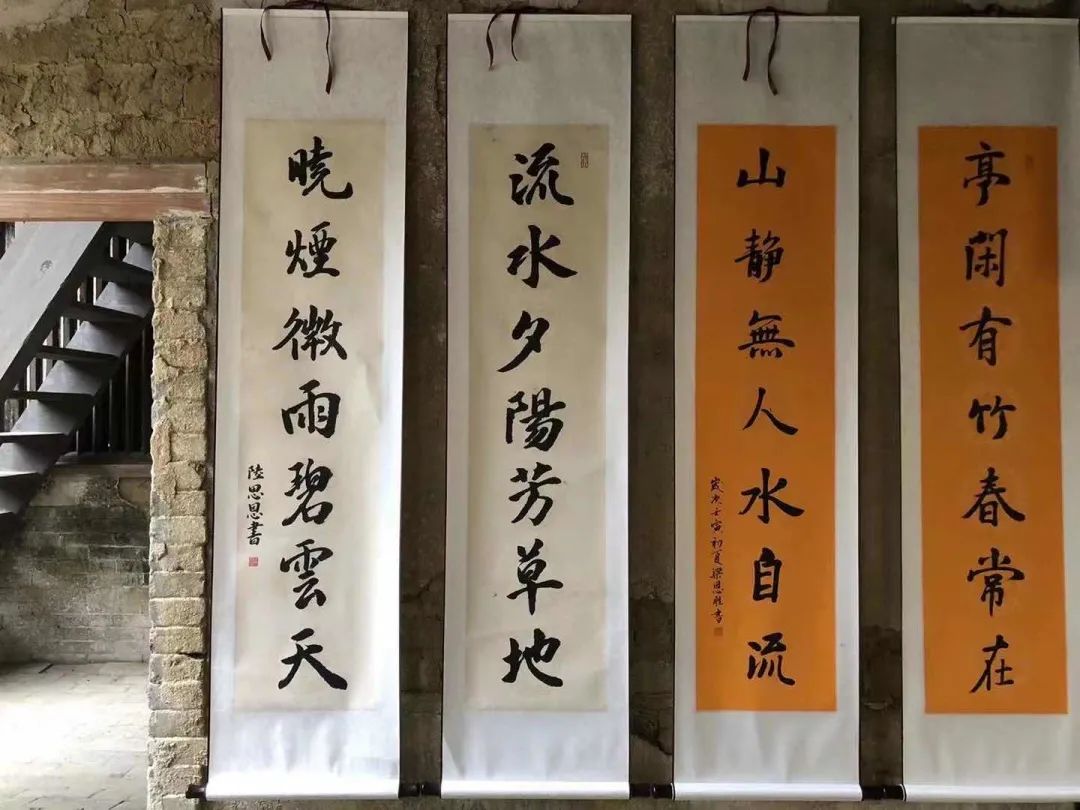 亭閑有竹春常在
山静無人水自流
歲次壬寅初夏梁恩書
流水夕陽芳草地
曉煙微雨碧雲天
陸思恩書